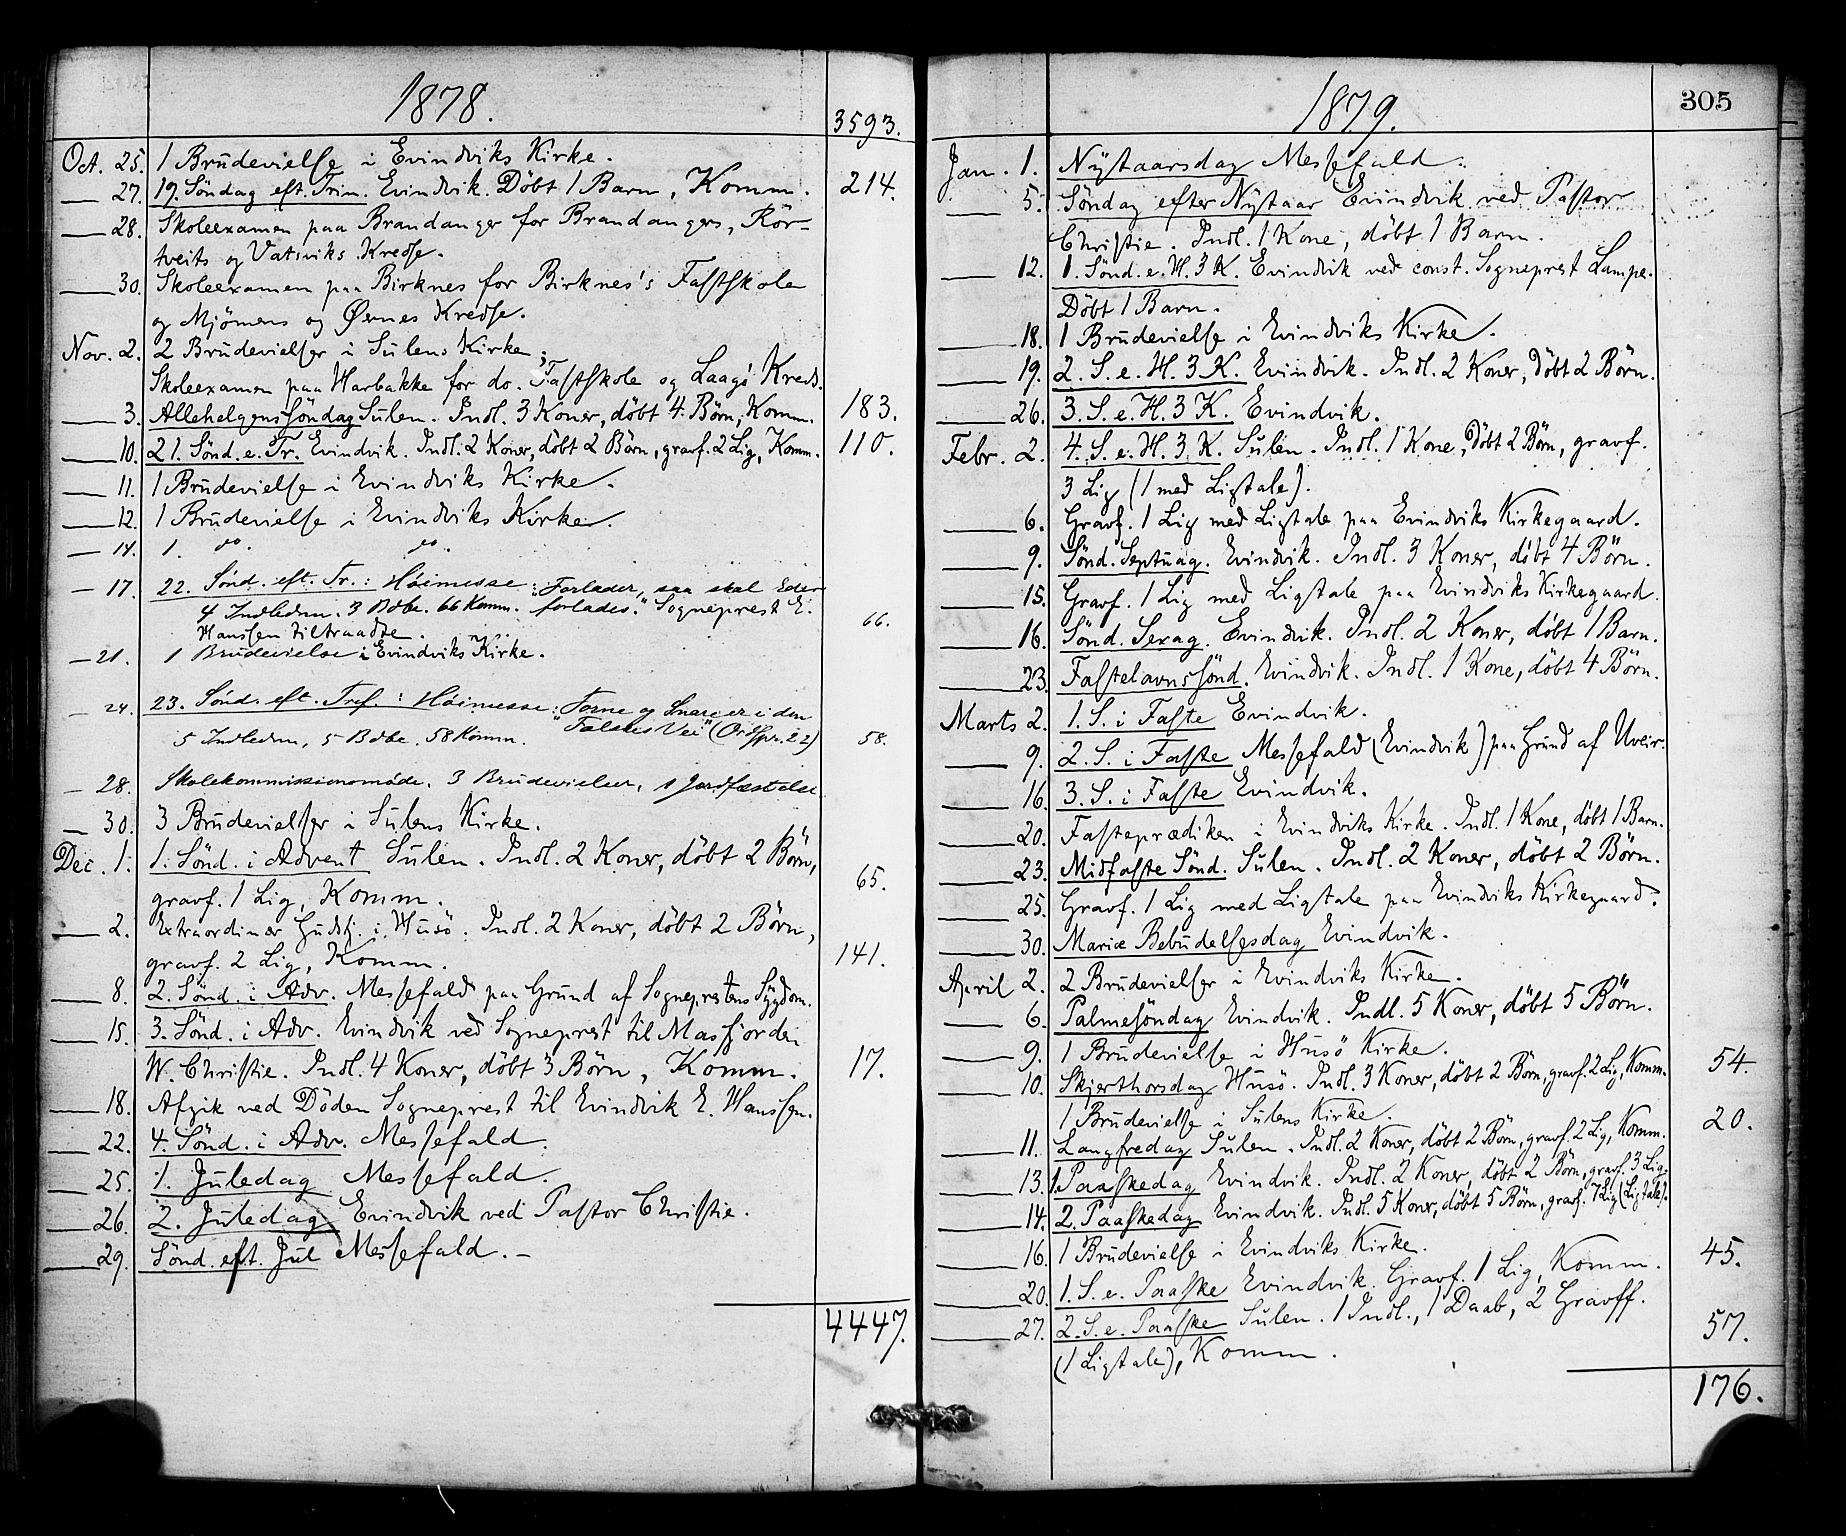 1878.
3593.
Oct. 25. 1 Brudevielse i Evindviks Kirke.
27. 19. Söndag eft. Trin. Evindvik. Döbt 1 Barn, Komm. 214.
28. Skoleexamen paa Brandanger for Brandangers, Rör-
tveits og Vatsviks Kredse.
30. Skoleexamen paa Birknes for Birknes's Fastskole
og Mjömens og Ørnes Kredse.
Nov. 2. 2 Brudevielser i Sulens Kirke;
Skoleexamen paa Harbakke for do. Fastskole og Laagö Kreds.
3. Allehelgens Söndag Sulen. Indl. 3 Koner, döbt 4 Börn, Komm. 183.
10. 21. Sönd. e. Tr. Evindvik. Indl. 2 Koner, döbt 2 Börn, gravf. 2 Lig, Komm. 110.
11. 1 Brudevielse i Evindviks Kirke.
12. 1 Brudevielse i Evindviks Kirke.
14. 1. do. do.
17. 22. Sönd. eft. Tr.: Höimesse: "Forlader, saa skal Eder
4 Indledn. 3 Bdbe. 66 Komm. forlades." Sogneprest E. 66.
Hanssen tiltraadte.
21. 1 Brudevielse i Evindviks Kirke.
24. 23. Sönd. eft. Tref.: Höimesse: Torne og Snarer er i den
5 Indledn, 5 Bdbe. 58 Komm. "Falskes Vei" (Ordspr. 22) 58.
28. Skolekommissionsmöde. 3 Brudevielser, 1 Jordfæstelse
30. 3 Brudevielser i Sulens Kirke.
Dec. 1. 1. Sönd. i Advent Sulen. Indl. 2 Koner, döbt 2 Börn,
gravf. 1 Lig, Komm. 65.
2. Extraordinær Gudstj. i Husö. Indl. 2 Koner, döbt 2 Börn,
gravf. 2 Lig, Komm. 141.
8. 2. Sönd. i Adv. Messefald paa Grund af Sogneprestens Sygdom.
15. 3. Sönd. i Adv. Evindvik ved Sogneprest til Masfjorden
W. Christie. Indl. 4 Koner, döbt 3 Börn, Komm. 17.
18. Afgik ved Döden Sogneprest til Evindvik E. Hanssen.
22. 4. Sönd. i Adv. Messefald.
25. 1. Juledag Messefald.
26. 2. Juledag Evindvik ved Pastor Christie.
29. Sönd. eft. Jul Messefald. –
4447.
1879.
305
Jan. 1. Nytaarsdag Messefald.
5. Söndag efter Nytaar Evindvik ved Pastor
Christie. Indl. 1 Kone, döbt 1 Barn.
12. 1. Sönd. e. H. 3 K. Evindvik ved const. Sogneprest Lampe.
Döbt 1 Barn.
18. 1 Brudevielse i Evindviks Kirke.
19. 2. S. e. H. 3 K. Evindvik. Indl. 2 Koner, Döbt 2 Börn.
26. 3. S. e. H. 3 K. Evindvik.
Febr. 2. 4. S. e. H. 3 K. Sulen. Indl. 1 Kone, Döbt 2 Börn, gravf.
3 Lig (1 med Ligtale).
6. Gravf. 1 Lig med Ligtale paa Evindviks Kirkegaard.
9. Sönd. Septuag. Evindvik. Indl. 3 Koner, döbt 4 Börn.
15. Gravf. 1 Lig med Ligtale paa Evindviks Kirkegaard.
16. Sönd. Sexag. Evindvik. Indl. 2 Koner, döbt 1 Barn.
23. Fastelavnssönd. Evindvik. Indl. 1 Kone, döbt 4 Börn.
Marts 2. 1. S. i Faste Evindvik.
9. 2. S. i Faste Messefald (Evindvik) paa Grund af Uveir.
16. 3. S. i Faste Evindvik.
20. Fasteprædiken i Evindviks Kirke. Indl. 1 Kone, döbt 1 Barn.
23. Midfaste Sönd. Sulen. Indl. 2 Koner, döbt 2 Börn.
25. Gravf. 1 Lig med Ligtale paa Evindviks Kirkegaard.
30. Mariæ Bebudelsesdag Evindvik.
April 2. 2 Brudevielser i Evindviks Kirke.
6. Palmesöndag Evindvik. Indl. 5 Koner, döbt 5 Börn.
9. 1 Brudevielse i Husö Kirke.
10. Skjerthorsdag Husö. Indl. 3 Koner, döbt 2 Börn, gravf. 2 Lig, Komm. 54.
1 Brudevielse i Sulens Kirke.
11. Langfredag Sulen. Indl. 2 Koner, döbt 2 Börn, gravf. 2 Lig, Komm. 20.
13. 1. Paaskedag Evindvik. Indl. 2 Koner, döbt 2 Börn, gravf. 3 Lig.
14. 2. Paaskedag Evindvik. Indl. 5 Koner, döbt 5 Börn, gravf. 7 Lig (Ligtale).
16. 1 Brudevielse i Evindviks Kirke.
20. 1. S. e. Paaske Evindvik. Gravf. 1 Lig, Komm. 45.
27. 2. S. e. Paaske Sulen. 1 Indl., 1 Daab, 2 Gravff.
(1 Ligtale), Komm. 57.
176.